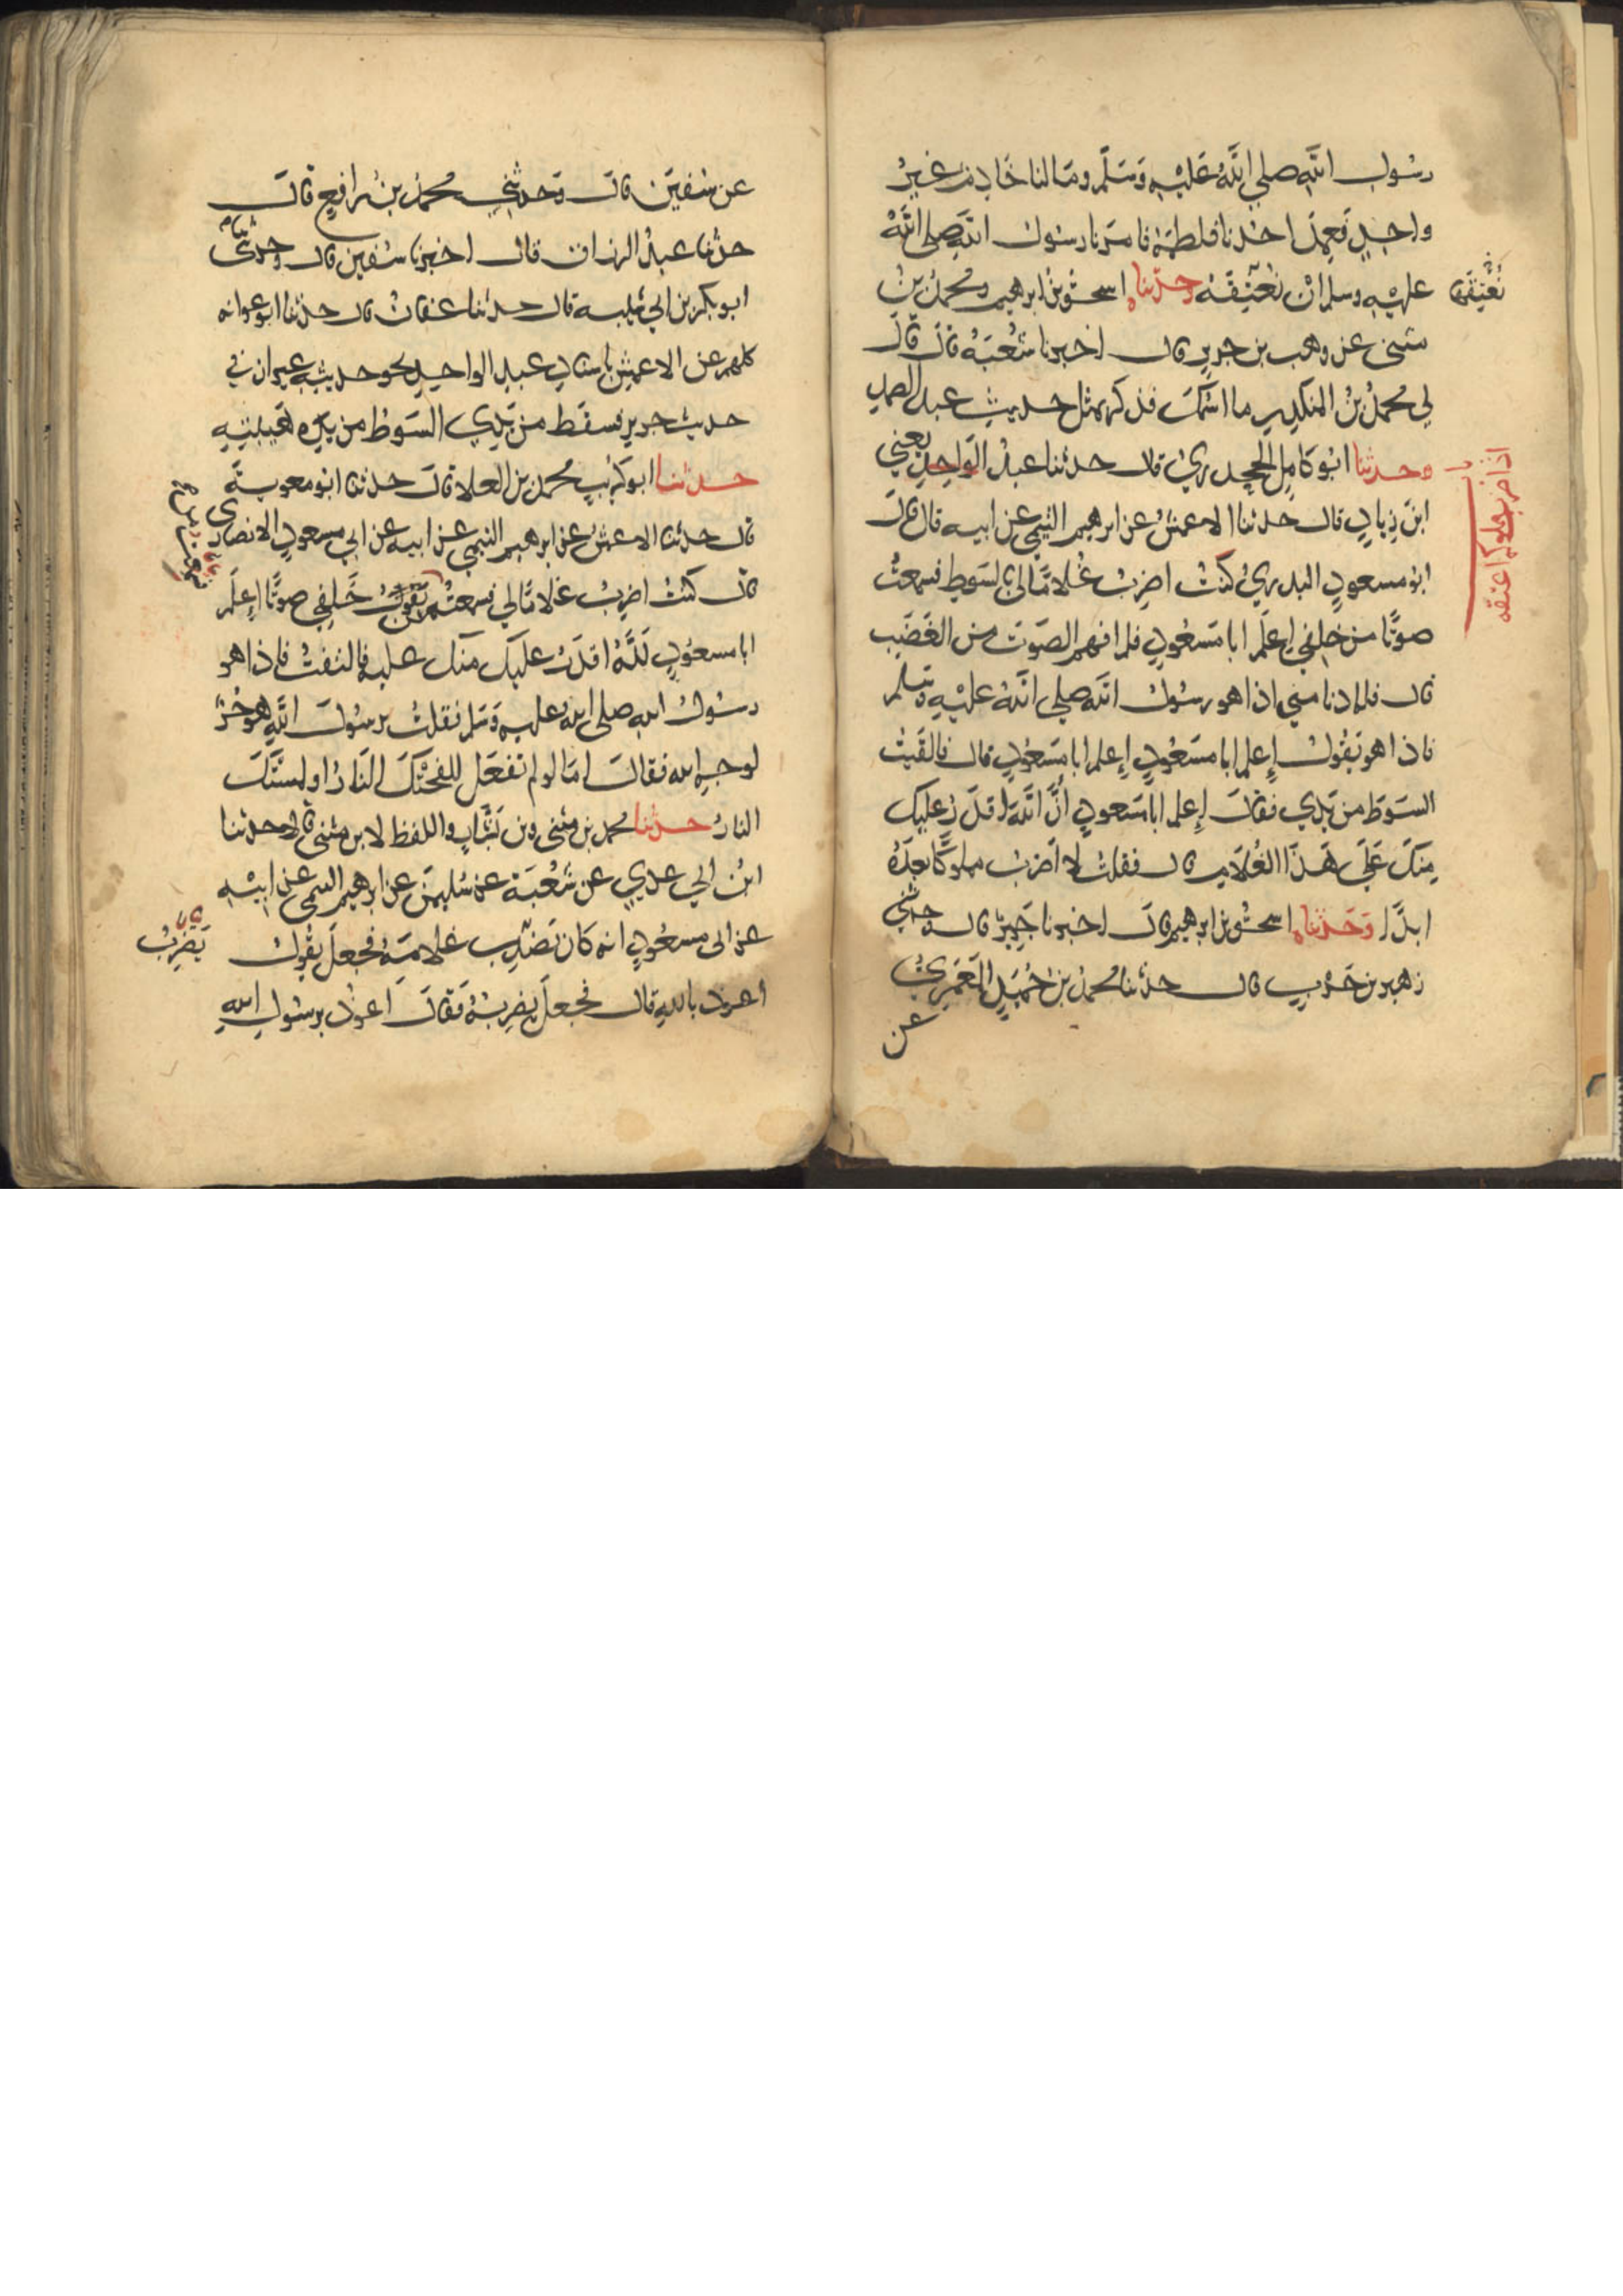 رسول الله صلي الله عليه وسلم وما لنا خادم غير
واحد فعمد احدنا فلطمه فامرنا رسول الله صلى الله
عليه وسلم ان نعتقه وحدثناه اسحق بن ابرهيم ومحمد بن
نعتقه
مثنى عن وهب بن جرير قال اخبرنا شعبة قال قال
لي محمد بن المنكدر ما اسمك فذكر بمثل حديث عبد الصمد
وحدثنا ابو كامل الجحدري قال حدثنا عبد الواحد يعني
اذا ضرب مملوكه اعتقه
ابن زياد قال حدثنا الاعمش عن ابرهيم التيمي عن ابيه قال قال
ابو مسعود البدري كنت اضرب غلاما لي بالسوط فسمعت
صوتا من خلفي اعلم ابا مسعود فلم افهم الصوت من الغضب
قال فلما دنا مني اذا هو رسول الله صلي الله عليه وسلم
فاذا هو يقول إعلم ابا مسعود إعلم ابا مسعود قال فالقيت
السوط من يدي فقال إعلم ابا مسعود أن الله اقدر عليك
منك على هذا الغلام قال فقلت لا اضرب مملوكا بعده
ابدا وحدثناه اسحق بن ابرهيم قال اخبرنا جرير قال وحدثني
زهير بن حرب قال حدثنا محمد بن حميد المعمري
عن
عن سفين قال وحدثني محمد بن رافع قال
حدثنا عبد الرزاق قال اخبرنا سفين قال وحدثنا
ابو بكر بن ابي شيبه قال حدثنا عفان قال حدثنا ابو عوانه
كلهم عن الاعمش باسناد عبد الواحد نحو حديثه غير ان في
حديث جرير فسقط من يدي السوط من يده لهيبته
حدثنا ابو كريب محمد بن العلا قال حدثنا ابو معوية
قال حدثنا الاعمش عن ابرهيم التيمي عن ابيه عن ابي مسعود الانصاري
قال كنت اضرب غلاما لي فسمعت من يقول خلفي صوتا إعلم
ابا مسعود لله اقدر عليك منك عليه فالتفت فاذا هو
رسول الله صلى الله عليه وسلم فقلت يرسول الله هو حر
لوجه الله فقال اما لو لم تفعل للفحتك النار او لمستك
النار حدثنا محمد بن مثنى وبن بشار واللفظ لابن مثنى قالا حدثنا
ابن ابي عدي عن شعبة عن سليمن عن ابرهيم التيمي عن ابيه
عن ابي مسعود انه كان يضرب غلامه فجعل يقول
يضرب
اعوذ بالله قال فجعل يضربه فقال اعوذ برسول الله